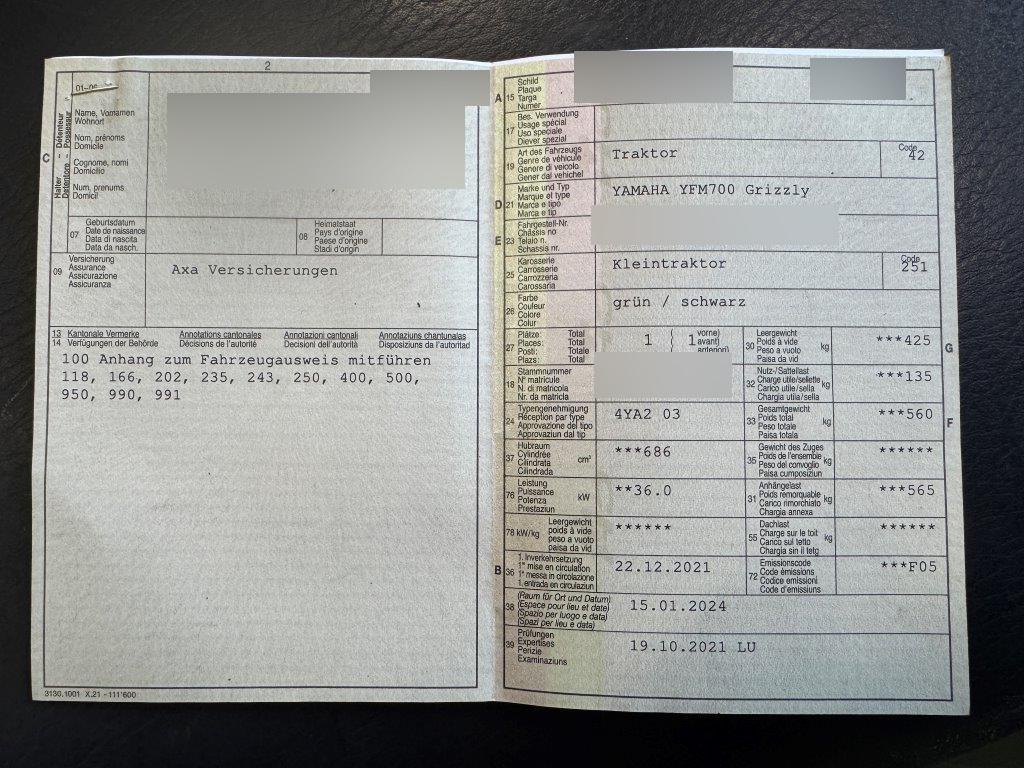 2
C
Halter - Détenteur
Detentore - Possessur
Name, Vornamen
Wohnort
Nom, prénoms
Domicile
Cognome, nomi
Domicilio
Num, prenums
Domicil
07
Geburtsdatum
Date de naissance
Data di nascita
Data da nasch.
08
Heimatstaat
Pays d'origine
Paese d'origine
Stadi d'origin
09
Versicherung
Assurance
Assicurazione
Assicuranza
Axa Versicherungen
13 Kantonale Vermerke Annotations cantonales Annotazioni cantonali Annotaziuns chantunales
14 Verfügungen der Behörde Décisions de l'autorité Decisioni dell'autorità Disposiziuns da l'autoritad
100 Anhang zum Fahrzeugausweis mitführen
118, 166, 202, 235, 243, 250, 400, 500,
950, 990, 991
3130.1001 X.21 - 111'600
A 15
Schild
Plaque
Targa
Numer
17
Bes. Verwendung
Usage spécial
Uso speciale
Diever spezial
19
Art des Fahrzeugs
Genre de véhicule
Genere di veicolo
Gener dal vehichel
Traktor
Code
42
D 21
Marke und Typ
Marque et type
Marca e tipo
Marca e tip
YAMAHA YFM700 Grizzly
E 23
Fahrgestell-Nr.
Châssis no
Telaio n.
Schassis nr.
25
Karosserie
Carrosserie
Carrozzeria
Carossaria
Kleintraktor
Code
251
26
Farbe
Couleur
Colore
Colur
grün / schwarz
27
Plätze: Total
Places: Total
Posti: Totale
Plazs: Total
1 ( 1
vorne)
avant)
anteriori)
30
Leergewicht
Poids à vide
Peso a vuoto
Paisa da vid
kg
***425
G
18
Stammnummer
N° matricule
N. di matricola
Nr. da matricla
32
Nutz-/Sattellast
Charge utile/sellette
Carico utile/sella
Chargia utila/sella
kg
***135
24
Typengenehmigung
Réception par type
Approvazione del tipo
Approvaziun dal tip
4YA2 03
33
Gesamtgewicht
Poids total
Peso totale
Paisa totala
kg
***560
F
37
Hubraum
Cylindrée
Cilindrata
Cilindrada
cm³
***686
35
Gewicht des Zuges
Poids de l'ensemble
Peso del convoglio
Paisa cumposiziun
kg
******
76
Leistung
Puissance
Potenza
Prestaziun
kW
**36.0
31
Anhängelast
Poids remorquable
Carico rimorchiato
Chargia annexa
kg
***565
78 kW/kg
Leergewicht
poids à vide
peso a vuoto
paisa da vid
******
55
Dachlast
Charge sur le toit
Carico sul tetto
Chargia sin il tetg
kg
******
B 36
1. Inverkehrsetzung
1re mise en circulation
1a messa in circolazione
1. entrada en circulaziun
22.12.2021
72
Emissionscode
Code émissions
Codice emissioni
Code d'emissiuns
***F05
38
(Raum für Ort und Datum)
(Espace pour lieu et date)
(Spazio per luogo e data)
(Spazi per lieu e data)
15.01.2024
39
Prüfungen
Expertises
Perizie
Examinaziuns
19.10.2021 LU